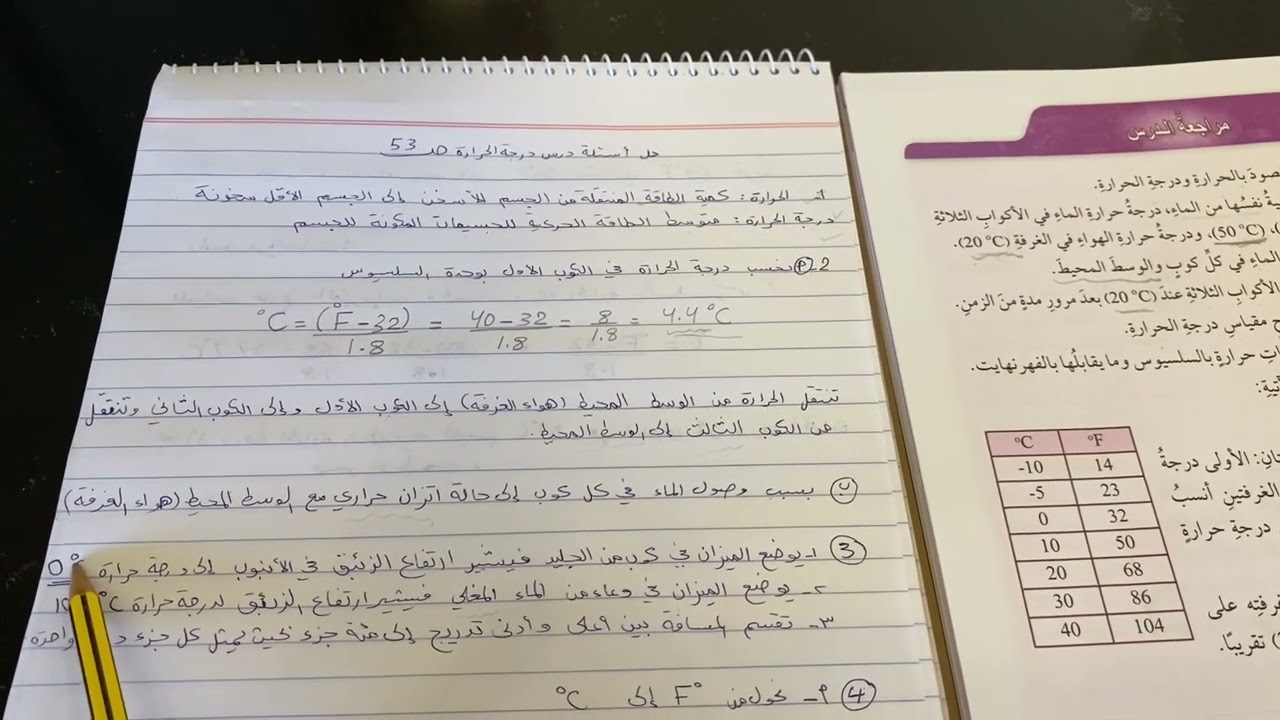 حل أسئلة درس درجة الحرارة ص 53
الحرارة: كمية الطاقة المنتقلة من الجسم الأسخن إلى الجسم الأقل سخونة
درجة الحرارة: متوسط الطاقة الحركية للجسيمات المكونة للجسم
2- نحسب درجة الحرارة في الكوب الأول بوحدة السلسيوس
°C = (°F - 32) / 1.8 = 40 - 32 / 1.8 = 8 / 1.8 = 4.4 °C
تنتقل الحرارة من الوسط المحيط (هواء الغرفة) إلى الكوب الأول وإلى الكوب الثاني وتنتقل
من الكوب الثالث إلى الوسط المحيط.
ب بسبب وصول الماء في كل كوب إلى حالة اتزان حراري مع الوسط المحيط (هواء الغرفة)
3 ١- يوضع الميزان في كوب من الجليد فيشير ارتفاع الزئبق في الأنبوب إلى درجة حرارة 0°
٢- يوضع الميزان في وعاء من الماء المغلي فيشير ارتفاع الزئبق لدرجة حرارة °C
٣- تقسم المسافة بين أعلى وأدنى تدريج إلى مئة جزء بحيث يمثل كل جزء واحدة
4 أ- نحول من °F إلى °C
مراجعة الدرس
بالحرارة ودرجة الحرارة.
نفسها من الماء، درجة حرارة الماء في الأكواب الثلاثة
(50 °C)، ودرجة حرارة الهواء في الغرفة (20 °C).
الماء في كل كوب والوسط المحيط.
الأكواب الثلاثة عند (20 °C) بعد مرور مدة من الزمن.
مقياس درجة الحرارة.
حرارة بالسلسيوس وما يقابلها بالفهرنهايت.
الأولى درجة
الغرفتين أنسب
درجة حرارة
على
تقريبًا.
°C °F
-10 14
-5 23
0 32
10 50
20 68
30 86
40 104